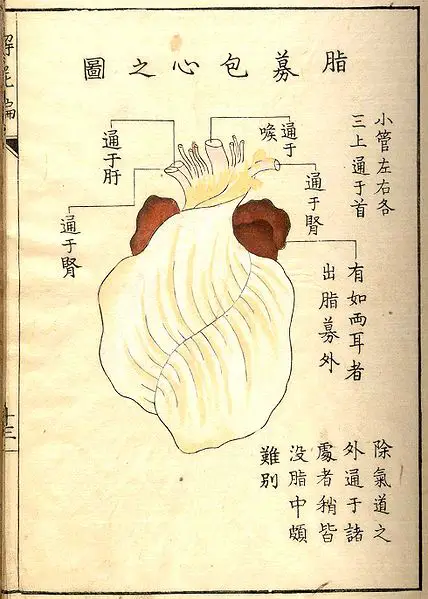 脂募包心之圖
小管左右各
三上通于首
通于
喉
通于腎
通于肝
通于腎
有如兩耳者
出脂募外
除氣道之
外通于諸
處者稍皆
没脂中頗
難別
十三